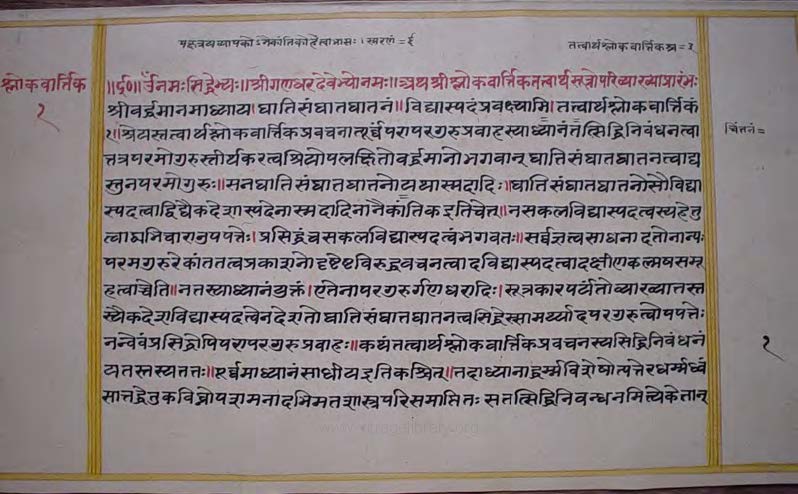 पक्षत्रयव्यापको ऽनैकांतिको हेत्वाभासः । स्मरणं = ६
तत्वार्थश्लोकवार्त्तिक श्र = २
श्लोकवार्त्तिक
१
॥६०॥ ॐ नमः सिद्धेभ्यः ॥ श्रीगणधरदेवेभ्यो नमः ॥ अथ श्रीश्लोकवार्त्तिकतत्वार्थसूत्रोपरिव्याख्याप्रारंभः
श्रीवर्द्धमानमाध्याय । घातिसंघातघातनं ॥ विद्यास्पदं प्रवक्ष्यामि । तत्वार्थश्लोकवार्त्तिकं
१ । श्रेयस्तत्वार्थश्लोकवार्त्तिकप्रवचनात्पूर्वं परापरगुरुप्रवाहस्याध्यानं तत्सिद्धिनिबंधनत्वा
चिंतनं =
त्तत्र परमो गुरुस्तीर्थकरत्वश्रियोपलक्षितो वर्द्धमानो भगवान् घातिसंघातघातनत्वाद्य
स्तु न परमो गुरुः ॥ स न घातिसंघातघातनो यथास्मदादिः ॥ घातिसंघातघातनोसौ विद्या
स्पदत्वाद्विद्यैकदेशास्पदेनास्मदादिनानैकांतिक इति चेत् ॥ न सकलविद्यास्पदत्वस्य हेतु
त्वाद्यभिचारानुपपत्तेः । प्रसिद्धं च सकलविद्यास्पदत्वं भगवतः ॥ सर्वज्ञत्वसाधनादतो नान्यः
परमगुरुरेकांततत्वप्रकाशनो दृष्टेष्टविरुद्धवचनत्वादविद्यास्पदत्वादक्षीणकल्मषसमू
हत्वाच्चेति ॥ न तस्याध्यानं युक्तं । एतेनापरगुरुर्गणधरादिः । सूत्रकारपर्यंतो व्याख्यातस्त
स्यैकदेशविद्यास्पदत्वेन देशतो घातिसंघातघातनत्वसिद्धेस्सामर्थ्यादपरगुरुत्वोपपत्तेः
नन्वेवं प्रसिद्धोपि परापरगुरुप्रवाहः ॥ कथं तत्वार्थश्लोकवार्त्तिकप्रवचनस्य सिद्धिनिबंधनं
१
यतस्तस्य ततः ॥ पूर्वमाध्यानं साधीय इति कश्चित् ॥ तदाध्यानाद्धर्म्मविशेषोत्पत्तेरधर्म्मध्वं
सात्तद्धेतुकविघ्नोपशमनादभिमतशास्त्रपरिसमाप्तितः स तत्सिद्धिनिबन्धनमित्येके तान्